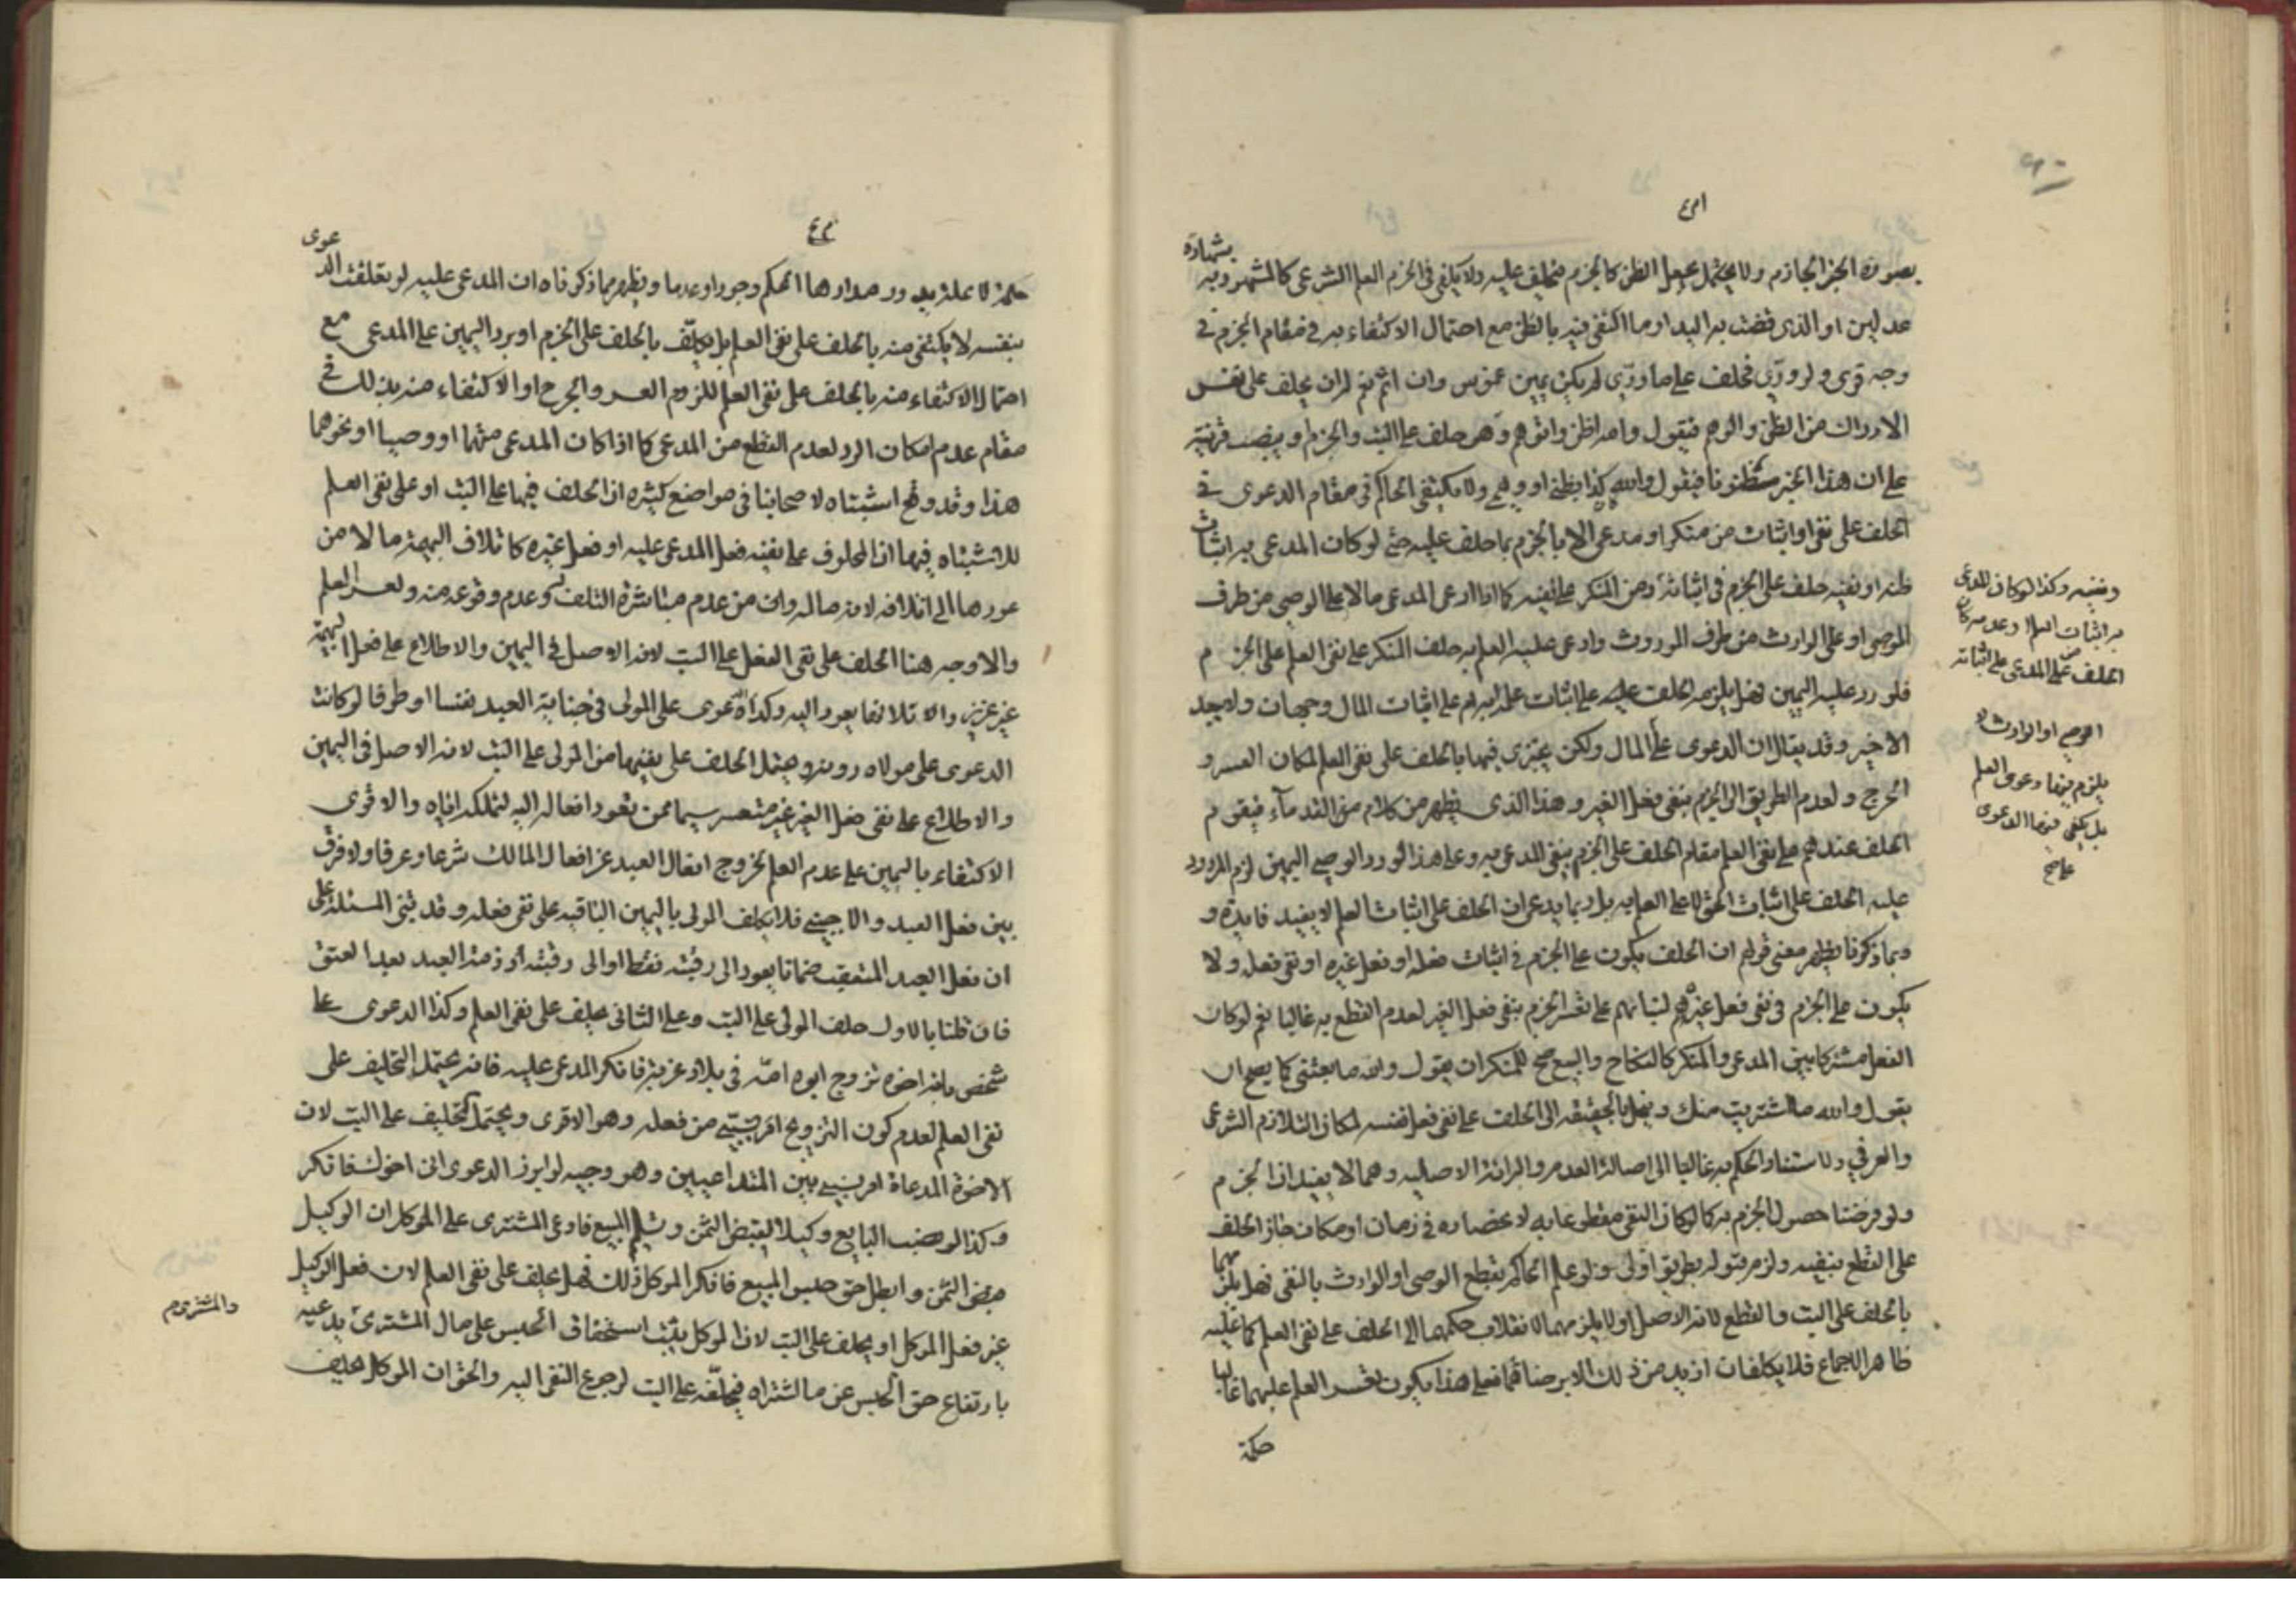 بصورة الخبر الجازم ولا يحتمل يجعل الظن كالجزم فيحلف عليه ولا يكفي في الجزم العلم الشرعي كالمشهود به بشهادة
عدلين او الذي قضت به اليد او ما اكتفي فيه بالظن مع احتمال الاكتفاء به في مقام الجزم في
وجه قوي ولو ورّي فحلف على ما ورّي لم يكن يمين غموس وان اثم نعم له ان يحلف على نفس
الادراك من الظن والوهم فيقول والله اظن واتوهم وهو حلف على البت والجزم او ينصب قرينة
على ان هذا الخبر مظنونا فيقول والله كذا بظني او وهمي ولا يكتفي الحاكم في مقام الدعوى في
الحلف على نفي او اثبات من منكر او مدعي الا بالجزم بما حلف عليه حتى لو كان المدعى به اثبات
ظنه او نفيه حلف على الجزم في اثباته ومن المنكر على نفيه كما اذا ادعى المدعي مالا على الوصي من طرف
الموصي او على الوارث من طرف الموروث وادعى عليه العلم به حلف المنكر على نفي العلم على الجزم
فلو رد عليه اليمين فهل يلزمه الحلف عليه على اثبات علمه به ام على اثبات المال وجهان ولا يبعد
الاخير وقد يقال ان الدعوى على المال ولكن يجتزي فيها بالحلف على نفي العلم لمكان العسر و
الحرج ولعدم الطريق الى الجزم بنفي فعل الغير وهذا الذي يظهر من كلام القدماء فيقوم
الحلف عندهم على نفي العلم مقام الحلف على الجزم بنفي المدعى به وعلى هذا لو رد الوصي اليمين لزم المردود
عليه الحلف على اثبات الحق لا على العلم به بل ربما يدعى ان الحلف على اثبات العلم لا يفيد فايدة و
وبما ذكرنا يظهر معنى قولهم ان الحلف يكون على الجزم في اثبات فعله او فعل غيره او نفي فعله ولا
يكون على الجزم في نفي فعل غيره لبنائهم على تعسر الجزم بنفي فعل الغير لعدم القطع به غالبا نعم لو كان
الفعل مشتركا بين المدعي والمنكر كالنكاح والبيع صح للمنكر ان يقول والله ما بعتني كما يصح ان
يقول والله ما اشتريت منك وينحل بالحقيقة الى الحلف على نفي فعل نفسه لمكان التلازم الشرعي
والعرفي ولاستناد الحكم به غالبا الى اصالة العدم والبرائة الاصلية وهما لا يفيدان الجزم
ولو فرضنا حصول الجزم به كما لو كان النفي مقطوعا به لانحصاره في زمان او مكان جاز الحلف
على القطع بنفيه ولزم قبوله بطريق اولى ولو علم الحاكم بقطع الوصي او الوارث بالنفي فهل يلزمهما
بالحلف على البت والقطع لانه الاصل او لا يلزمهما لانقلاب حكمهما الى الحلف على نفي العلم كما عليه
ظاهر الاجماع فلا يكلفان ازيد من ذلك الا برضاهما فعلى هذا يكون تعسر العلم عليهما غالبا
حكمة
ونفيه وكذا لو كان المدعى
به اثبات العلم او عدمه كان
الحلف من المدعي على اثباته
الوصي او الوارث لا
يلزم فيها دعوى العلم
بل يكفي فيها الدعوى
صح
حكمة لا علة يدور مدارها الحكم وجودا وعدما ويظهر مما ذكرناه ان المدعى عليه لو تعلقت الدعوى
بنفسه لا يكتفى منه بالحلف على نفي العلم بل يكلّف بالحلف على الجزم او برد اليمين على المدعي مع
احتمال الاكتفاء منه بالحلف على نفي العلم للزوم العسر والحرج او الاكتفاء منه بذلك في
مقام عدم امكان الرد لعدم القطع من المدعي كما اذا كان المدعي متهما او وصيا او نحوهما
هذا وقد وقع اشتباه لاصحابنا في مواضع كثيرة ان الحلف فيها على البت او على نفي العلم
للاشتباه فيها ان المحلوف على نفيه فعل المدعى عليه او فعل غيره كاتلاف البهيمة مالا من
عودها الى اتلافه لانه ماله وان من عدم مباشرة التلف وعدم وقوعه منه ولعسر العلم
والاوجه هنا الحلف على نفي الفعل على البت لانه الاصل في اليمين والاطلاع على فعل البهيمة
غير عزيز والاتلاف انما يعود اليه وكذا الدعوى على المولى في جناية العبد نفسا او طرفا لو كانت
الدعوى على مولاه دونه ويحتمل الحلف على نفيها من المولى على البت لانه الاصل في اليمين
والاطلاع على نفي فعل الغير غير متعسر سيما ممن تعود افعاله اليه لتملكه اياه والاقوى
الاكتفاء باليمين على عدم العلم لخروج افعال العبد عن افعال المالك شرعا وعرفا ولا فرق
بين فعل العبد والاجنبي فلا يكلف المولى باليمين النافية على نفي فعله وقد تبنى المسئلة على
ان فعل العبد المتعقب ضمانا يعود الى رقبته فقط او الى رقبته او ذمة العبد بعد العتق
فان قلنا بالاول حلف المولى على البت وعلى الثاني يحلف على نفي العلم وكذا الدعوى على
شخص بانه اخوه تزوج ابوه امّه في بلاد غريبة فانكر المدعى عليه فانه يحتمل التحليف على
نفي العلم لعدم كون التزويج امر نسبتي من فعله وهو الاقوى ويحتمل التحليف على البت لان
الاخوة المدعاة امر نسبي بين المتداعيين وهو وجيه لو ابرز الدعوى اني اخوك فانكر
وكذا لو نصب البايع وكيلا لقبض الثمن وتسليم المبيع فادعى المشتري على الموكل ان الوكيل
قبض الثمن وابطل حق حبس المبيع فانكر الموكل ذلك فهل يحلف على نفي العلم لان فعل الوكيل
غير فعل الموكل او يحلف على البت لان الموكل يثبت استحقاق الحبس على مال المشتري يدعيه
بارتفاع حق الحبس عن ما اشتراه فيحلفه على البت لرجوع النفي اليه والحق ان الموكل يحلف
والمشتري